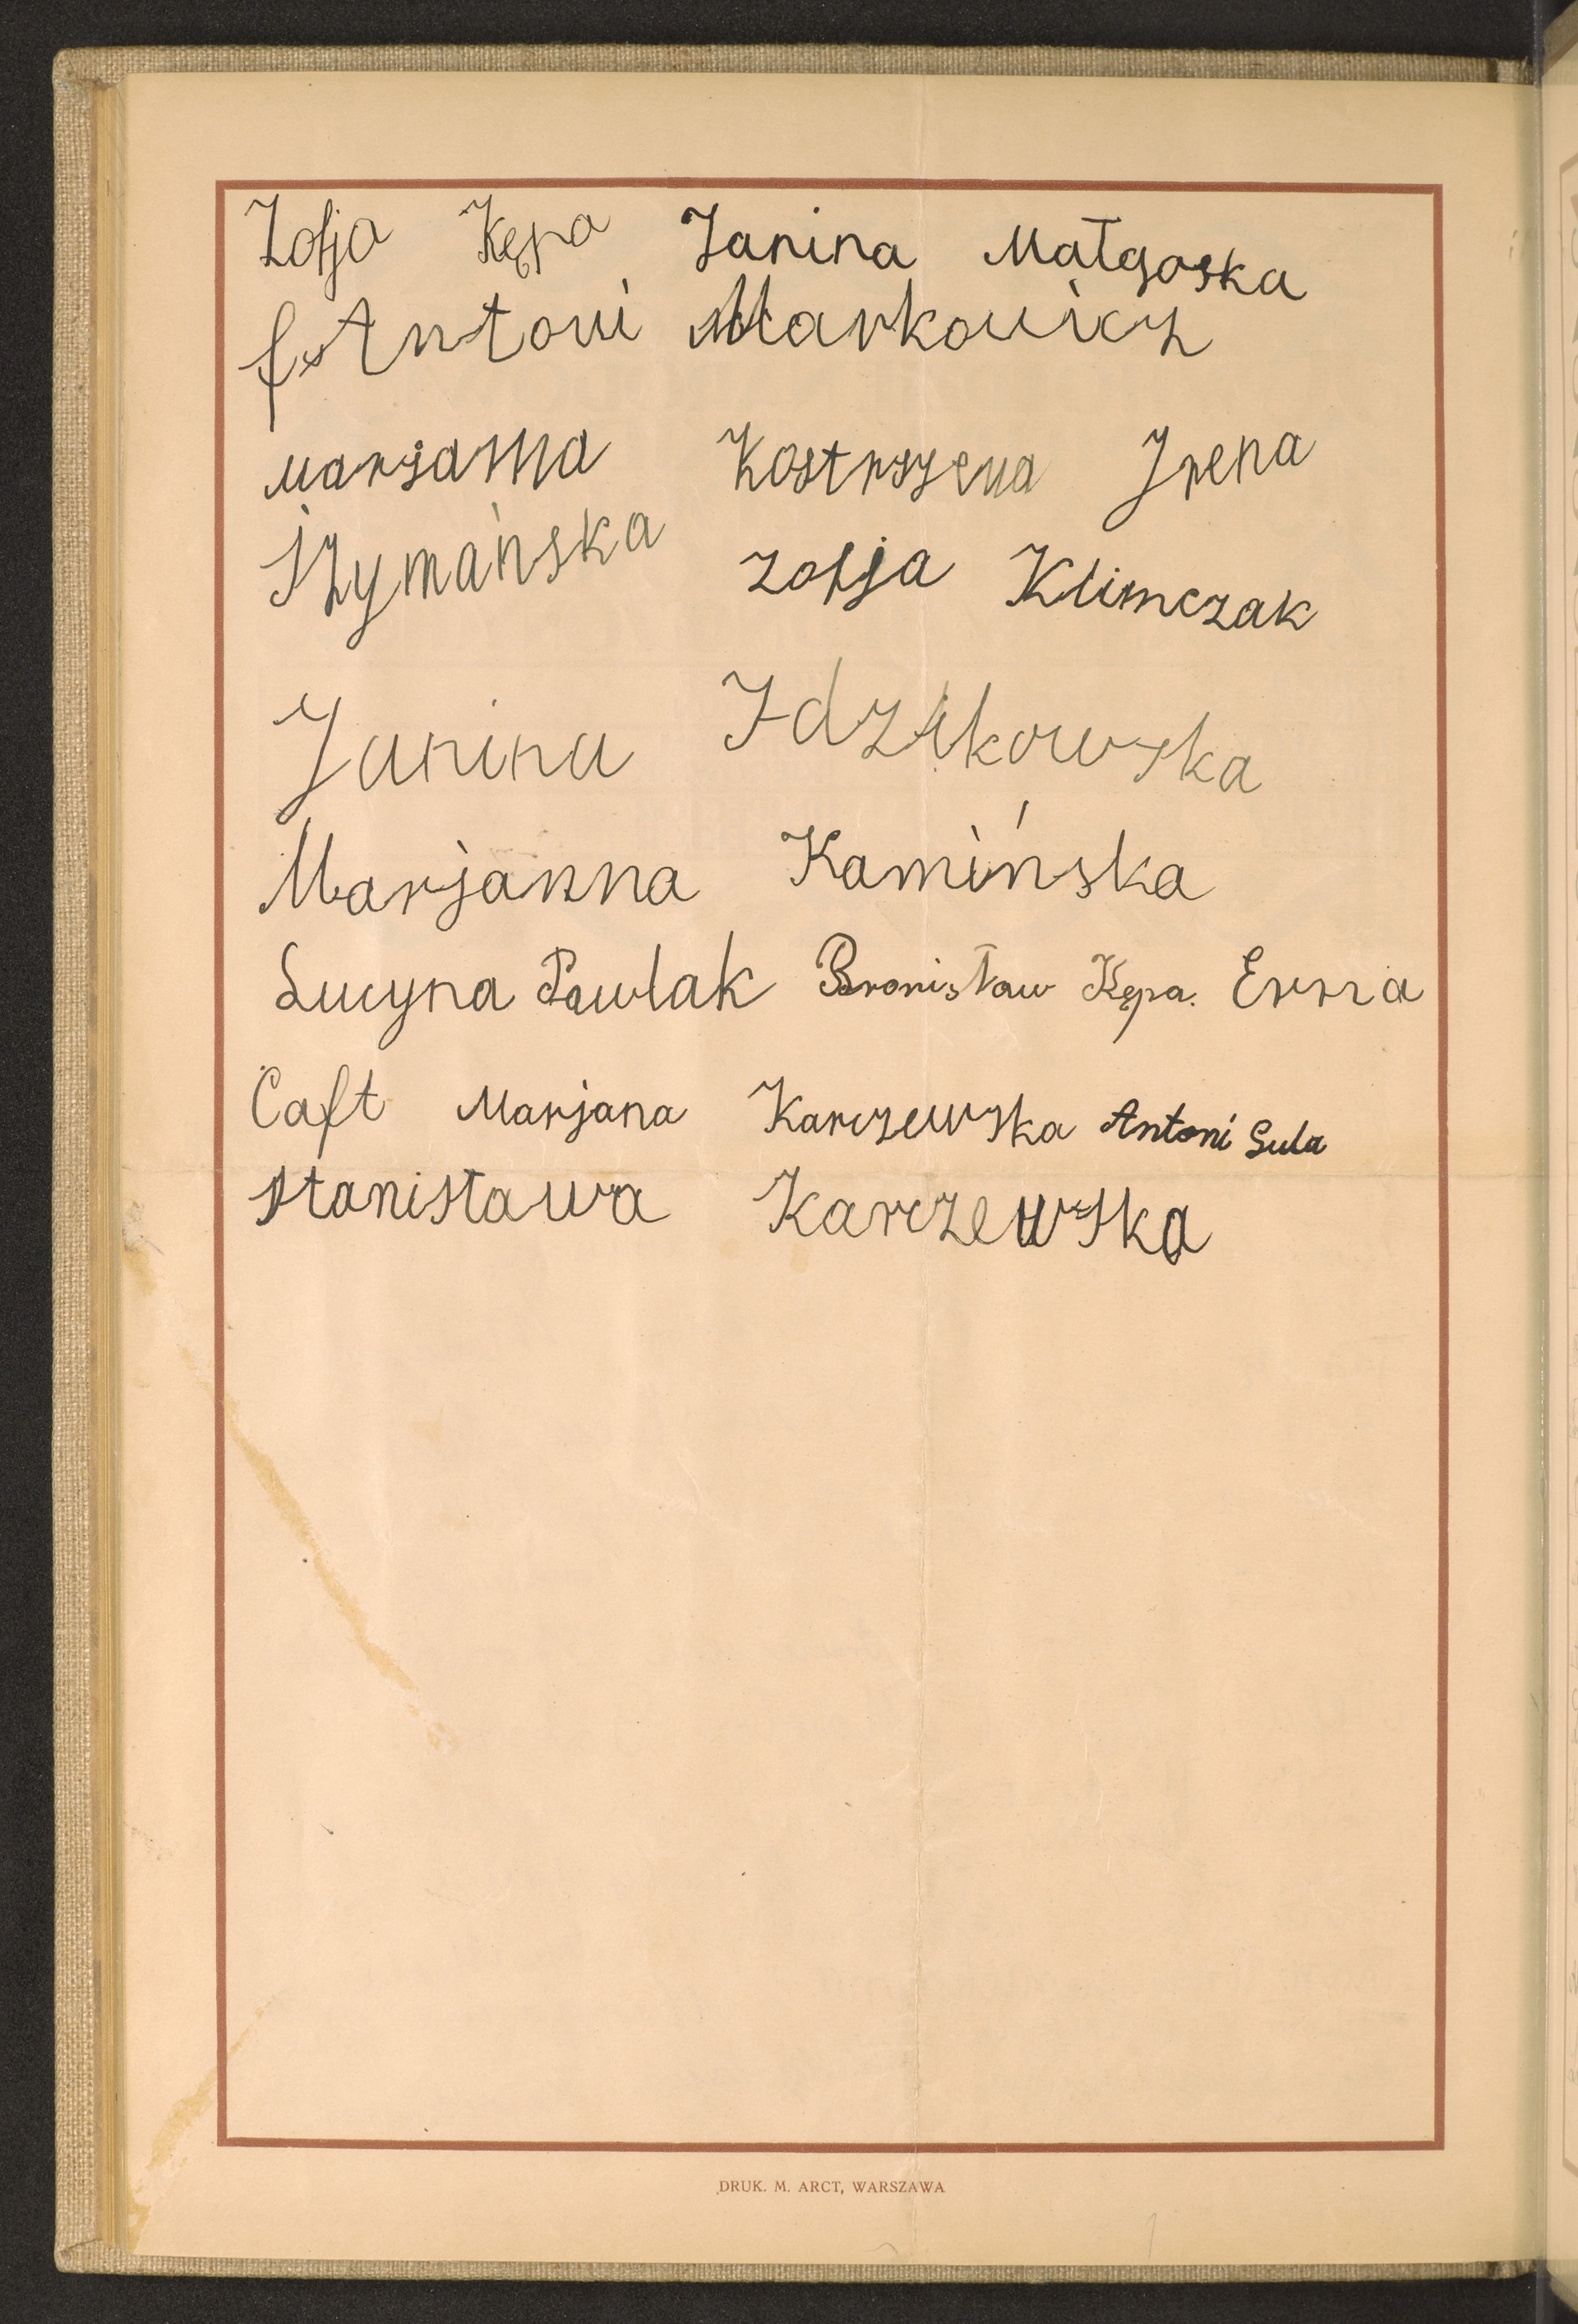 Zofja Kępa Janina Małgoska
Antoni Markowicz
Marjanna Kostrzewa Irena
Szymańska Zofja Klimczak
Janina Idzikowska
Marjanna Kamińska
Lucyna Pawlak Bronisław Kępa. Erna
Caft Marjana Karczewska Antoni Sula
Stanisława Karczewska
DRUK. M. ARCT, WARSZAWA